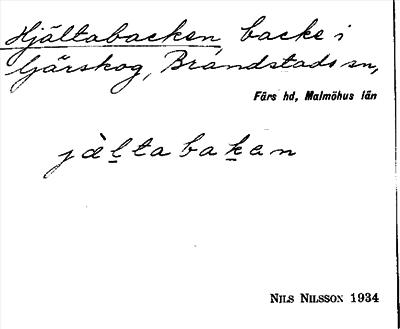 Hjältabacken, backe i
Gärskog, Brandstads sn,
Färs hd, Malmöhus län
jàḻtabaḵen
NILS NILSSON 1934